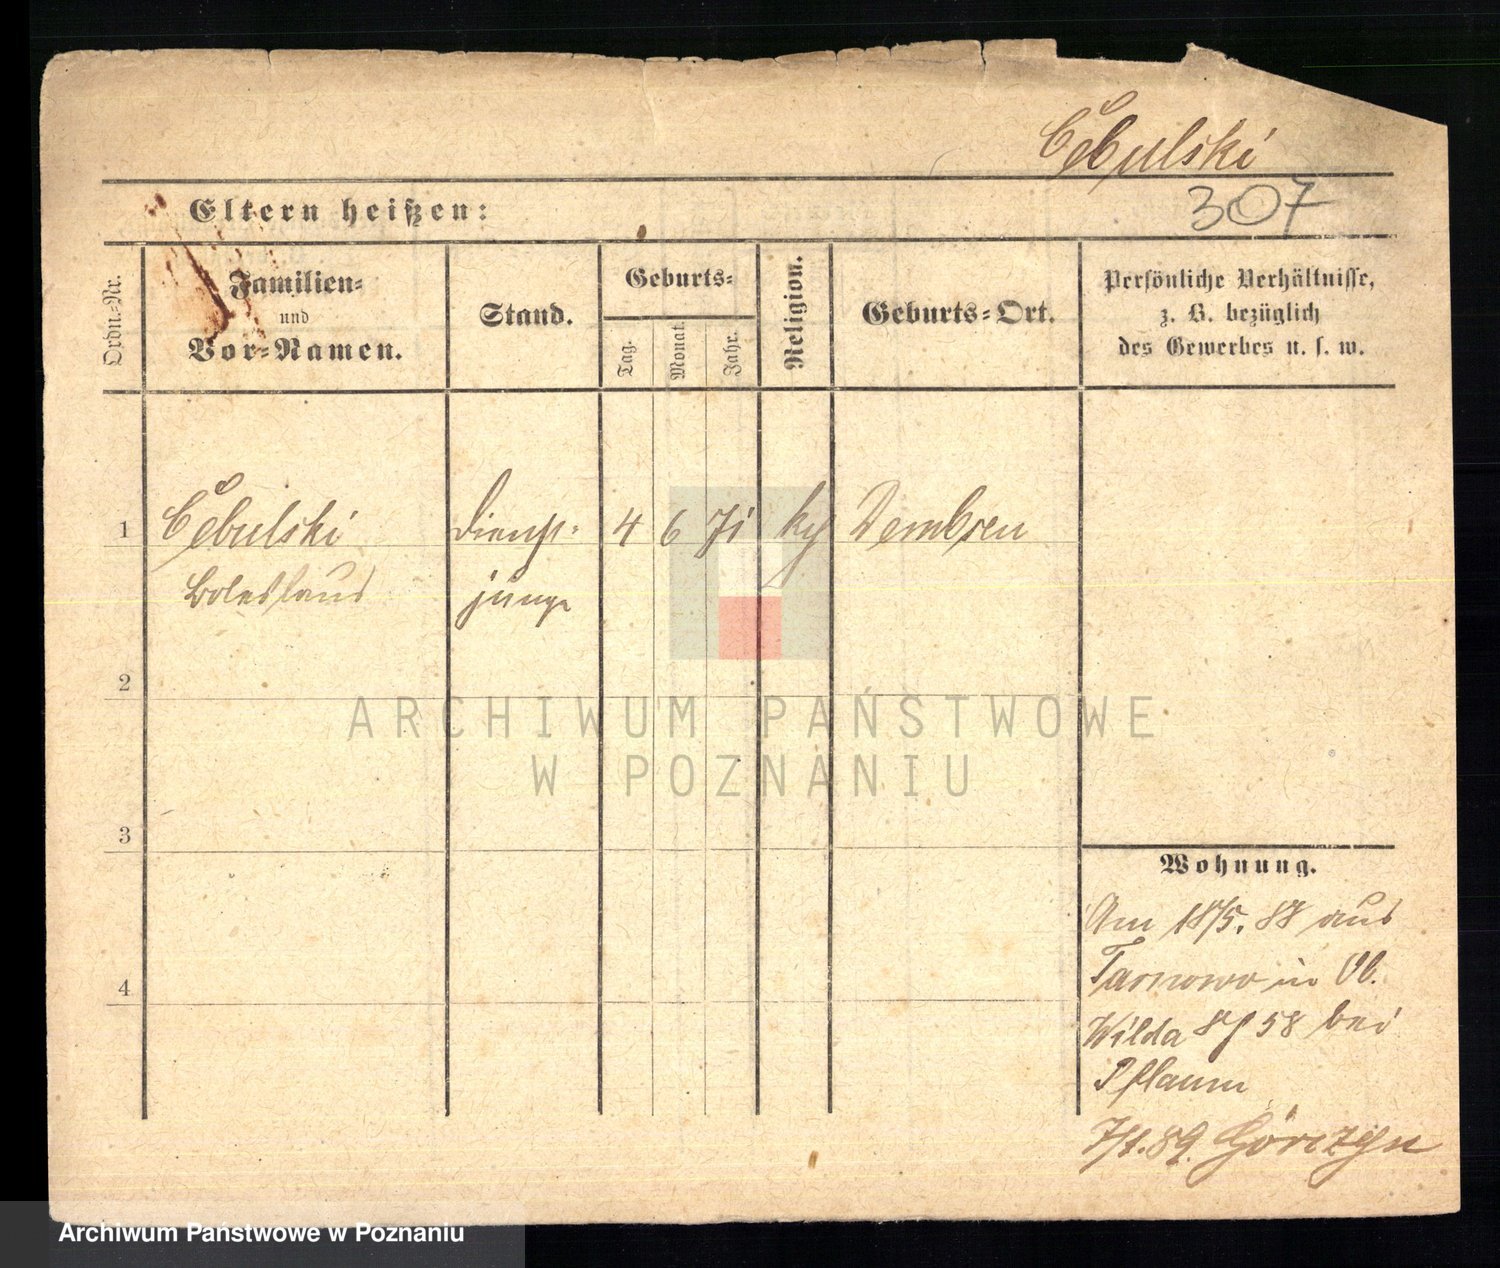 Cebulski
307
Eltern heißen:
Ordn.-Nr.
Familien-
und
Vor-Namen.
Stand.
Geburts-
Tag.
Monat.
Jahr.
Religion.
Geburts-Ort.
Persönliche Verhältnisse,
z. B. bezüglich
des Gewerbes u. s. w.
1
Cebulski
Dienst-
4
6
71
Dembsen
Boleslaus
junge
2
ARCHIWUM PAŃSTWOWE
W POZNANIU
3
Wohnung.
Am 18/5. 88 aus
4
Tarnowo in Ob.
Wilda 58 bei
Pflaum
89. Górczyn
Archiwum Państwowe w Poznaniu